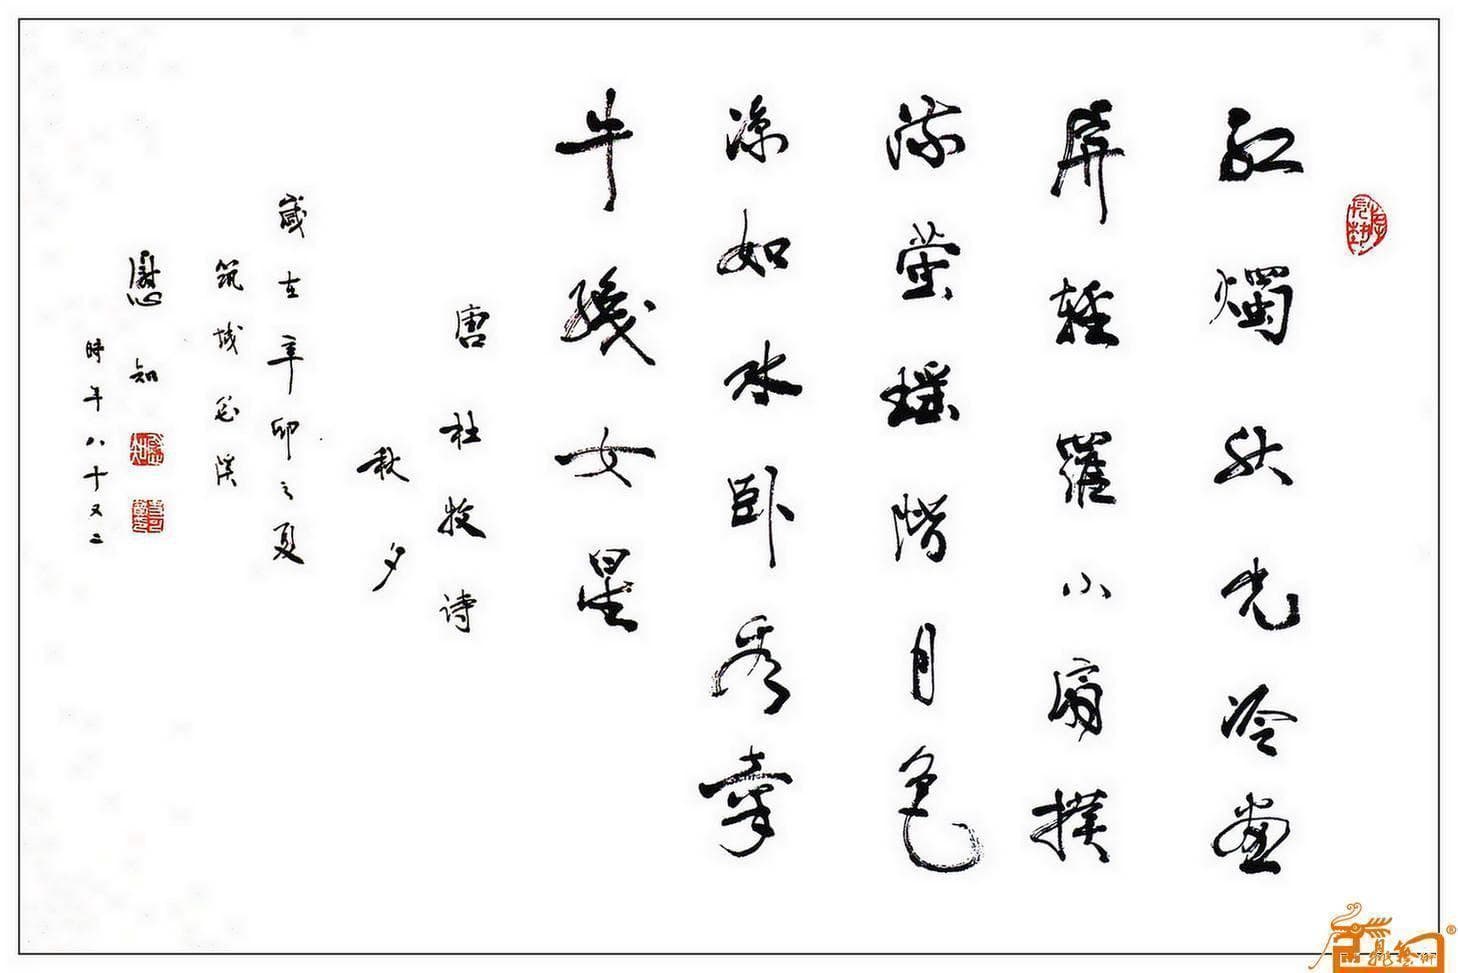 红烛秋光冷画
屏轻罗小扇扑
流萤瑶阶月色
凉如水卧看牵
牛织女星
唐杜牧诗
秋夕
岁在辛卯之夏
筑城花溪
慰知
時年八十又二